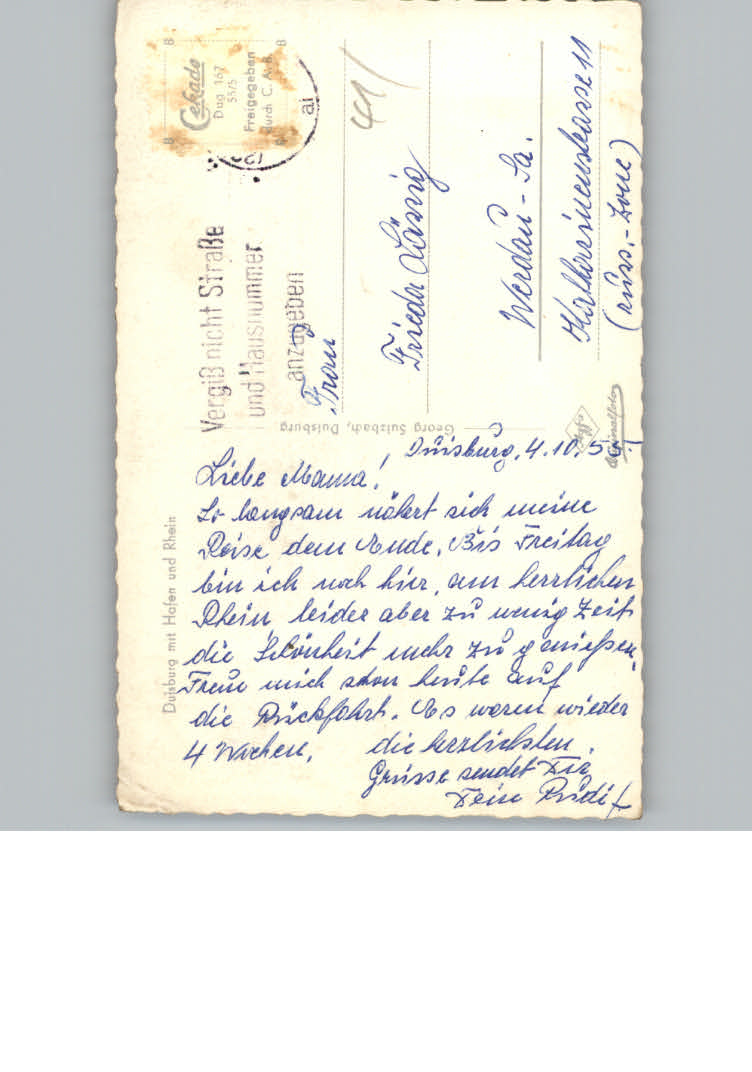 Cekade
Dug 167
53/5
Freigegeben
durch C. A. B.
Vergiß nicht Straße
und Hausnummer
anzugeben
Frau
Frieda Lässig
Werdau - Sa.
Katharinenstrasse 11
(russ.-Zone)
41/
Georg Sulzbach, Duisburg
Originalfoto
Duisburg mit Hafen und Rhein
Duisburg, 4.10.5
Liebe Mama!
So langsam nähert sich meine
Reise dem Ende. Bis Freitag
bin ich noch hier, am herrlichen
Rhein, leider aber zu wenig Zeit
die Schönheit mehr zu genießen.
Freue mich schon heute auf
die Rückfahrt. Es waren wieder
4 Wochen. die herzlichsten
Grüsse sendet Dir
Dein Rudi